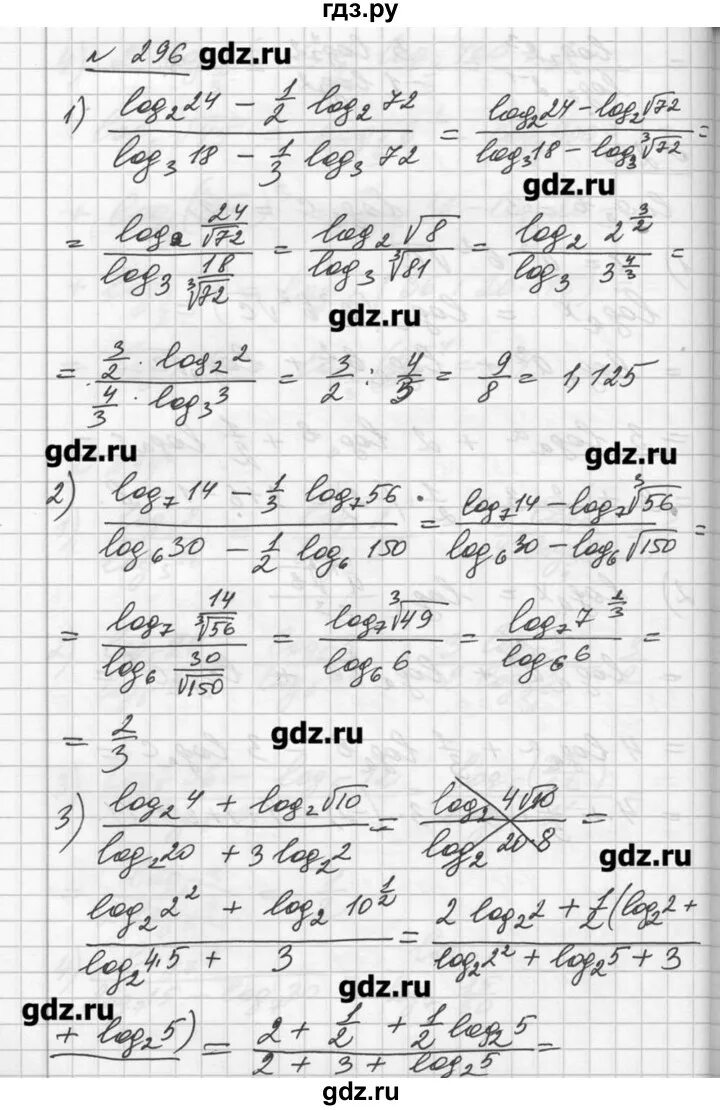 гдз.ру
№ 296 gdz.ru
1) (log₂24 − 1/2 log₂72)/(log₃18 − 1/3 log₃72) = (log₂24 − log₂√72)/(log₃18 − log₃∛72) =
gdz.ru
= (log₂ 24/√72)/(log₃ 18/∛72) = (log₂√8)/(log₃∛81) = (log₂ 2^(3/2))/(log₃ 3^(4/3)) =
gdz.ru
= (3/2 · log₂2)/(4/3 · log₃3) = 3/2 : 4/3 = 9/8 = 1,125
gdz.ru gdz.ru
2) (log₇14 − 1/3 log₇56)/(log₆30 − 1/2 log₆150) = (log₇14 − log₇∛56)/(log₆30 − log₆√150) =
= (log₇ 14/∛56)/(log₆ 30/√150) = (log₇∛49)/(log₆6) = (log₇7^(2/3))/(log₆6) =
= 2/3 gdz.ru
3) (log₂4 + log₂√10)/(log₂20 + 3log₂2) = (log₂ 4√10)/(log₂ 20·8) =
gdz.ru
(log₂2² + log₂10^(1/2))/(log₂4·5 + 3) = (2log₂2 + 1/2(log₂2 +)/(log₂2² + log₂5 + 3)
gdz.ru gdz.ru
+ log₂5) = (2 + 1/2 + 1/2 log₂5)/(2 + 3 + log₂5) =
gdz.ru